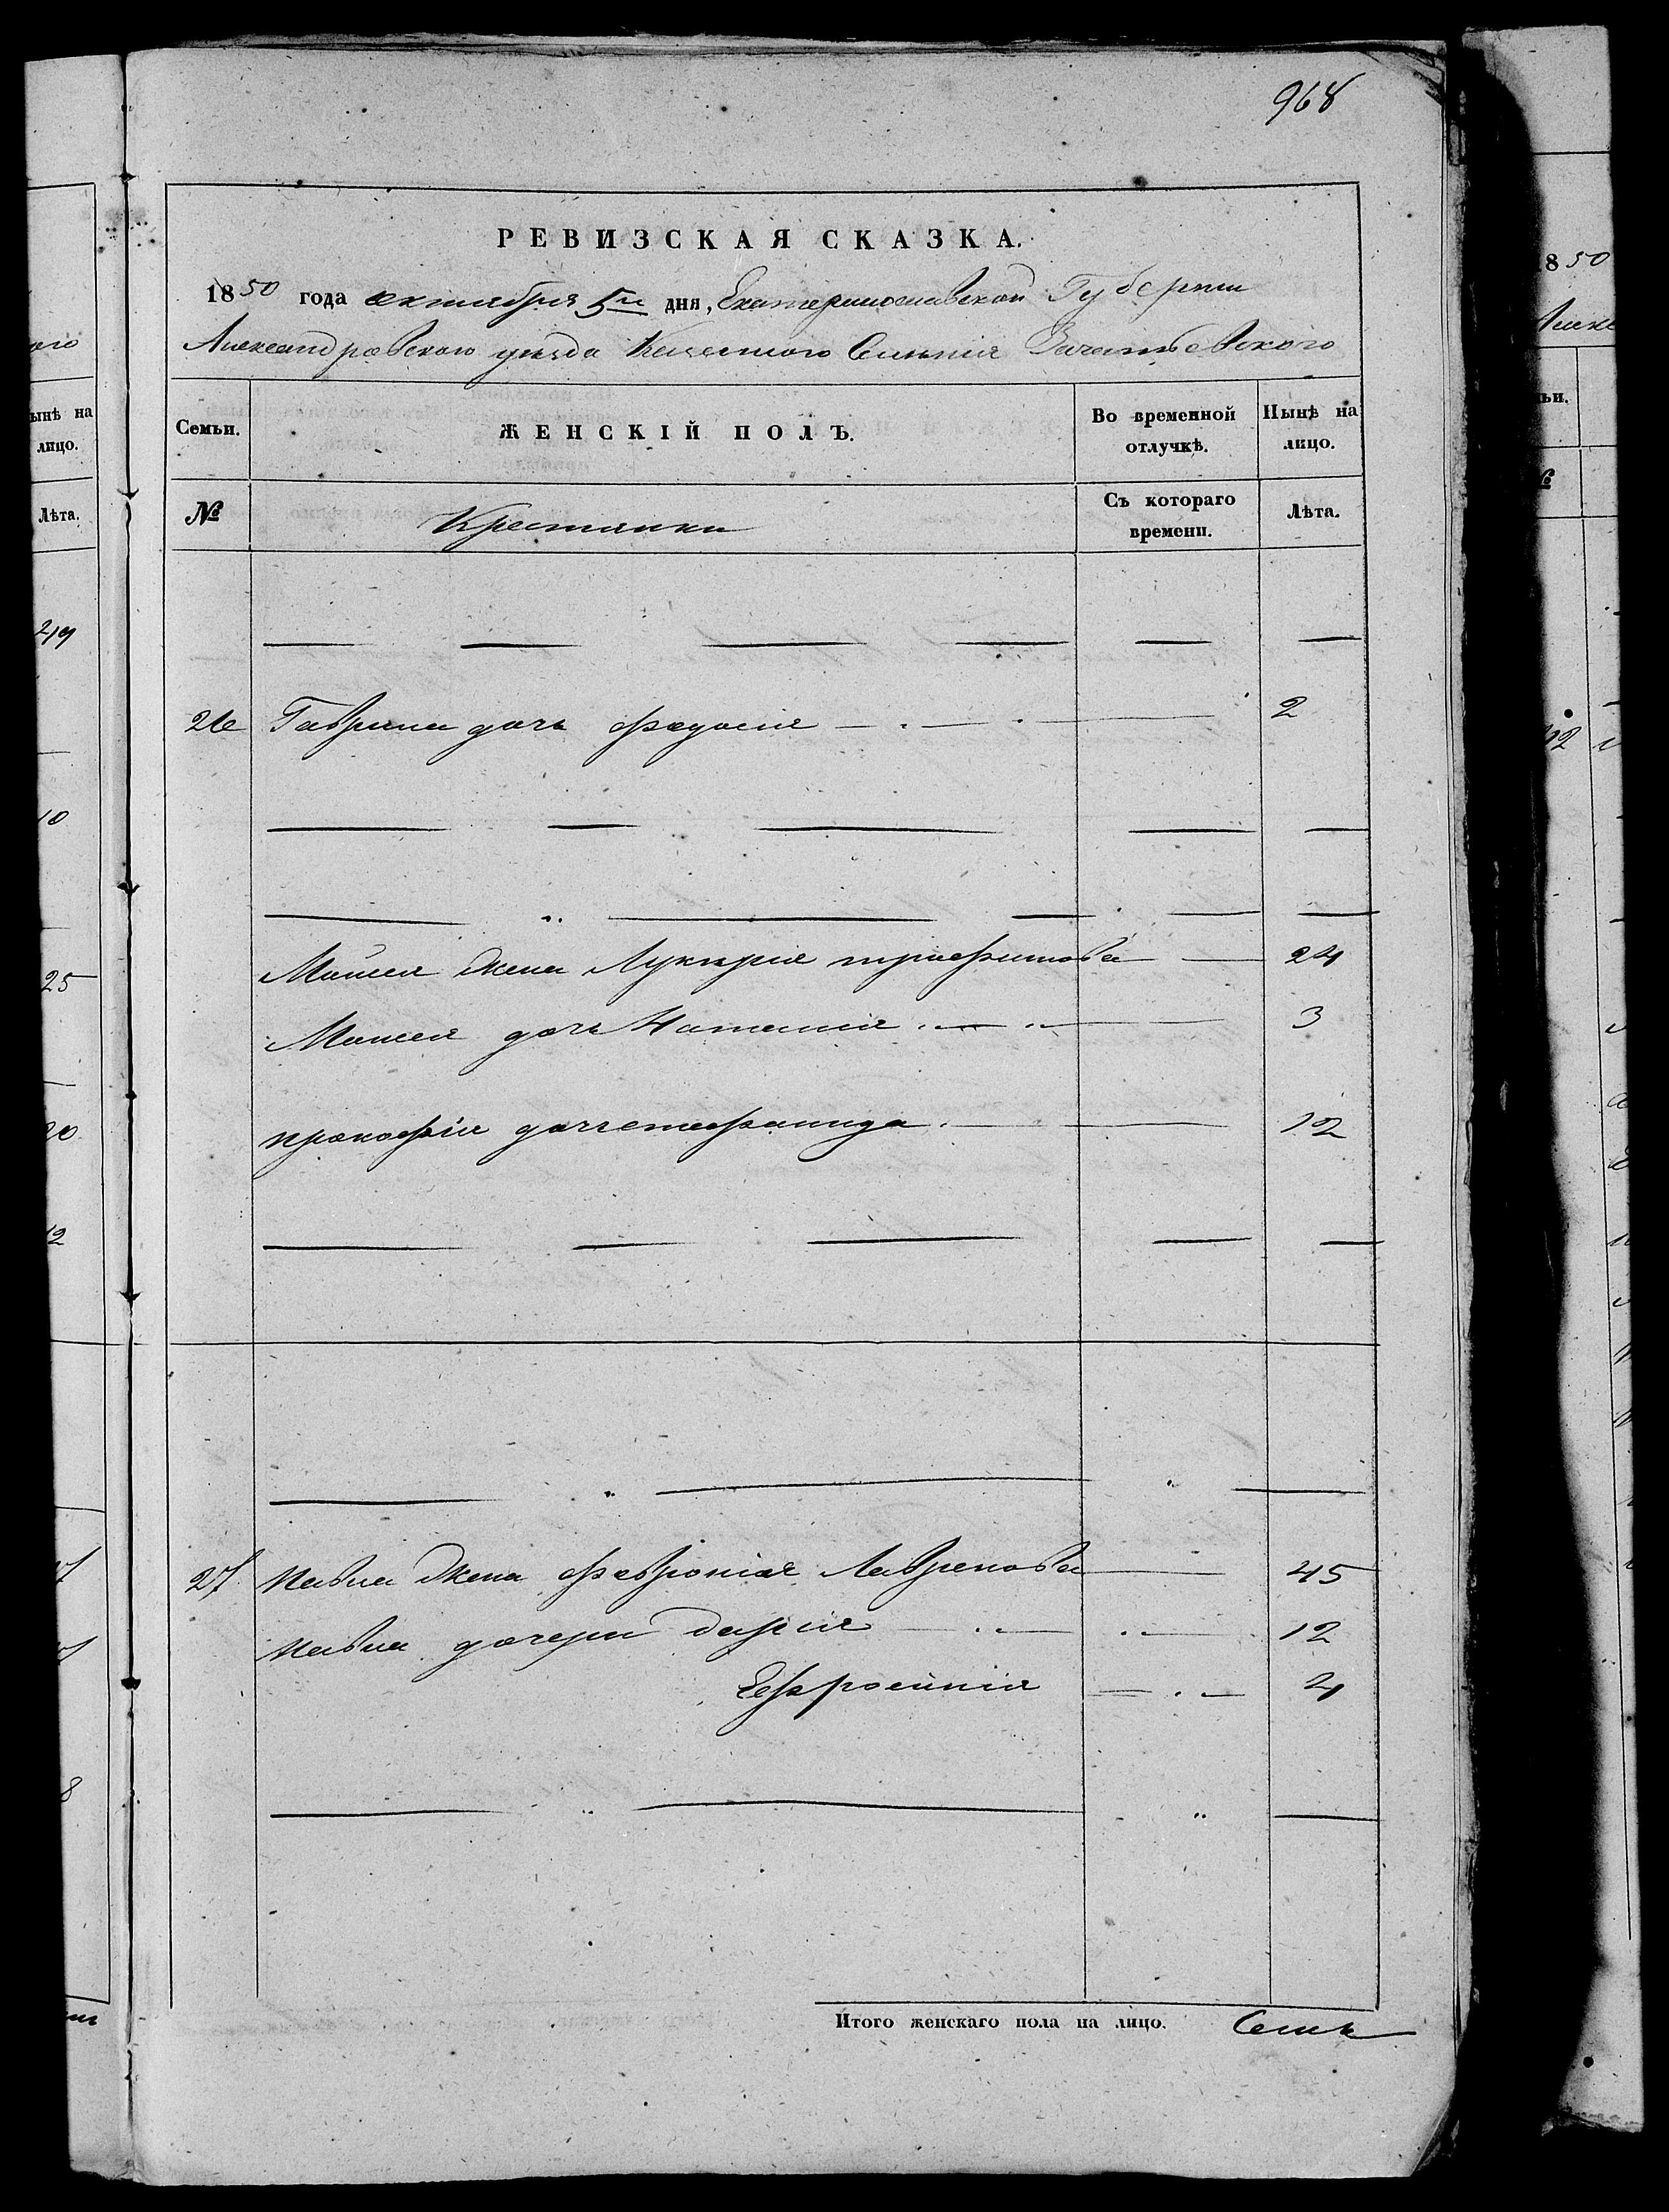 968
РЕВИЗСКАЯ СКАЗКА.
1850 года октября 5го дня, Екатеринославской Губернии
Александровского уезда Казенного Селения Зачатьевского
Семьи. ЖЕНСКІЙ ПОЛЪ. Во временной отлучкѣ. Нынѣ на лицо.
№ Крестянки Съ котораго времени. Лѣта.
26 Гаврила дочь Федосия 2
Моисея жена Лукирия трофимова 24
Моисея дочь Наталия 3
прокофия дочь степанида 12
27 павла жена Феврония Лавренова 45
павла дочери дария 12
Ефросиния 4
Итого женскаго пола на лицо. Семь